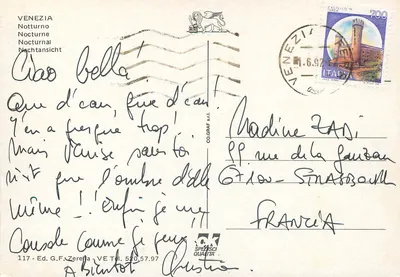 VENEZIA
Notturno
Nocturne
Nocturnal
Nachtansicht
Ciao bella!
Que d'eau, que d'eau!
Y'en a presque trop!
Mais Venise sans toi
n'est que l'ombre d'elle
même!! Enfin je me
console comme je peux!
A Bientôt
117 - Ed. G.F. Zerella - VE Tel. 520.57.97
CO.GRAF s.r.l.
VENEZIA
6.92
200
ITALIA
Nadine ZADI
99 rue de la
67100 - STRASBOURG
FRANCIA